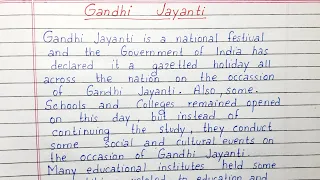 Gandhi Jayanti
Gandhi Jayanti is a national festival
and the Government of India has
declared it a gazetted holiday all
across the nation on the occassion
of Gandhi Jayanti. Also, some.
Schools and Colleges remained opened
on this day, but instead of
continuing the study, they conduct
some social and cultural events on
the occasion of Gandhi Jayanti.
Many educational institutes held some
related to education and